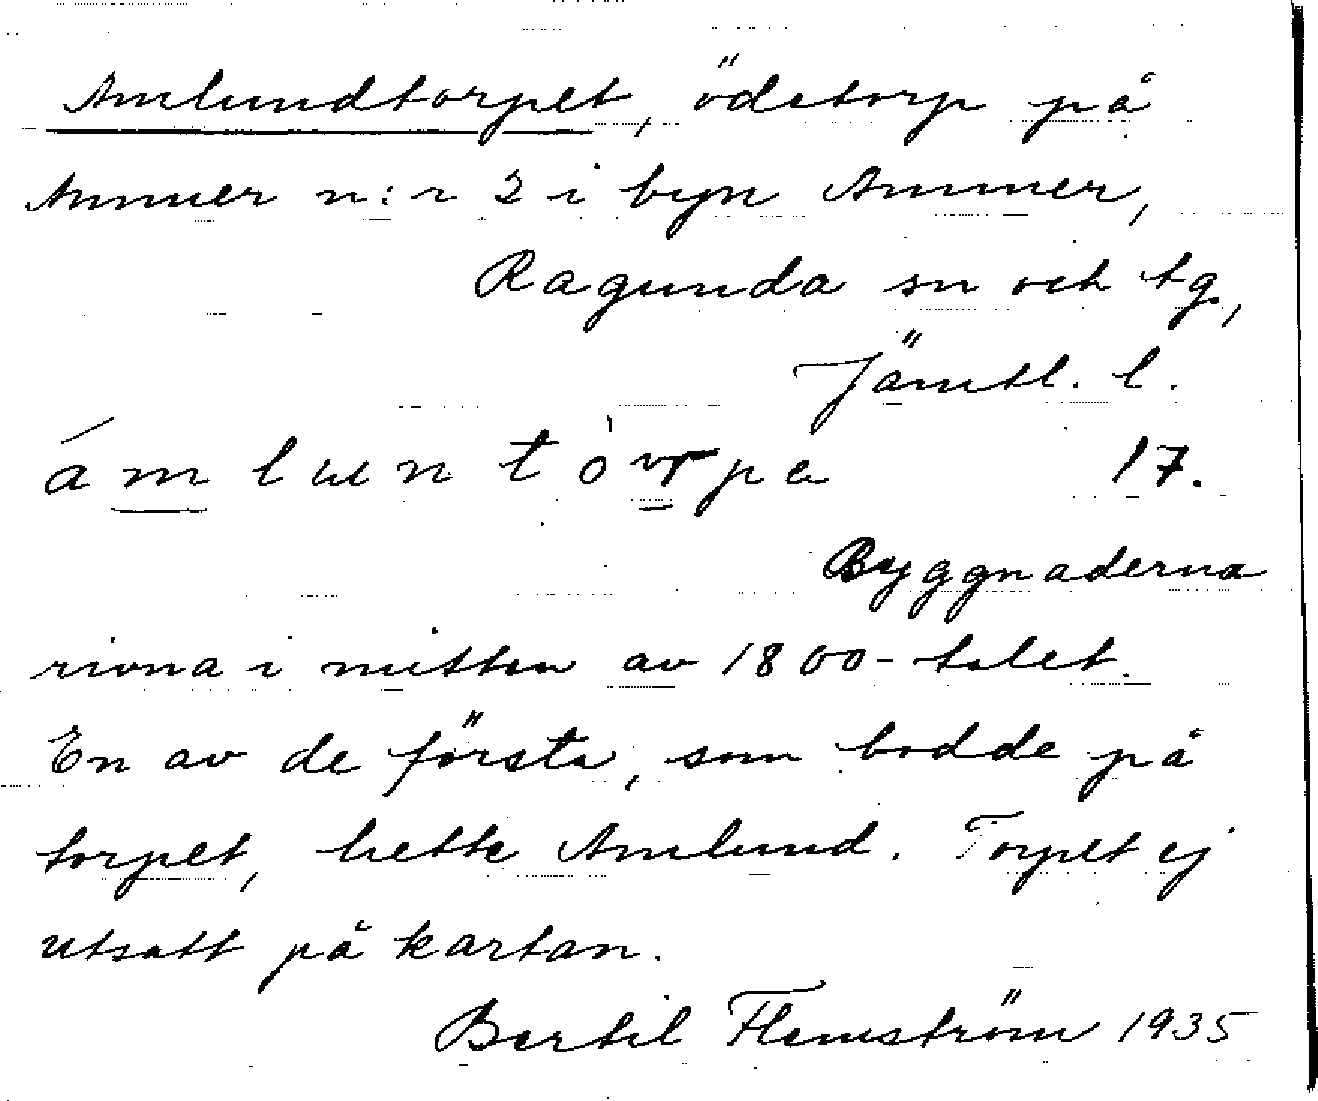 Amlundtorpet, ödetorp på
Ammer n:r 2 i byn Ammer,
Ragunda sn och tg,
Jämtl. l.
17.
Byggnaderna
rivna i mitten av 1800-talet.
En av de första, som bodde på
torpet, hette Amlund. Torpet ej
utsatt på kartan.
Bertil Flemström 1935